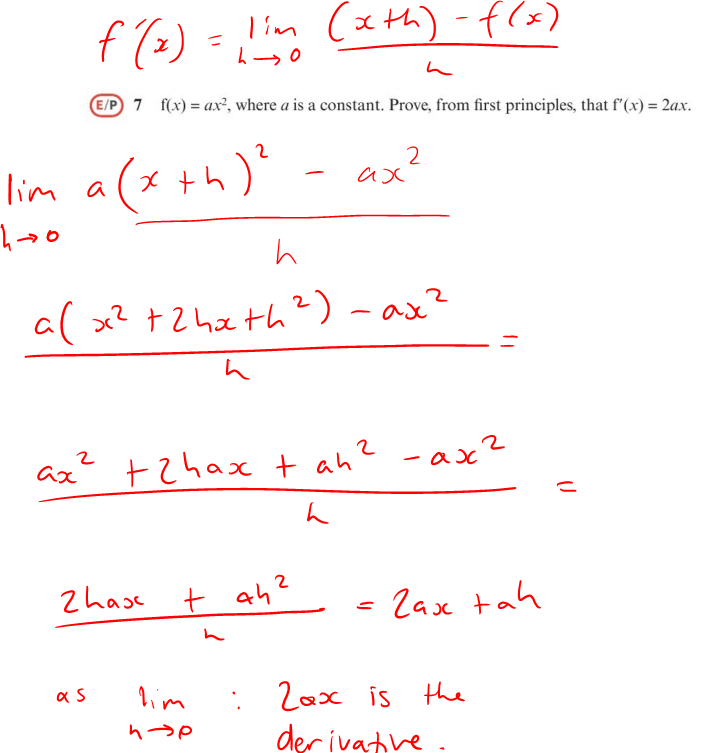 f'(x) = lim h→0 (x+h) - f(x) / h
E/P 7 f(x) = ax², where a is a constant. Prove, from first principles, that f′(x) = 2ax.
lim h→0 a(x+h)² - ax² / h
a(x² + 2hx + h²) - ax² / h =
ax² + 2hax + ah² - ax² / h =
2hax + ah² / h = 2ax + ah
as lim h→0 : 2ax is the
derivative.